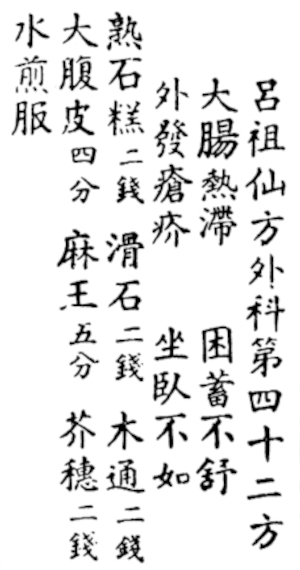 呂祖仙方外科第四十二方
大腸熱滯　困蓄不舒
外發瘡疥　坐臥不如
熟石糕二錢　滑石二錢　木通二錢
大腹皮四分　麻王五分　芥穗二錢
水煎服